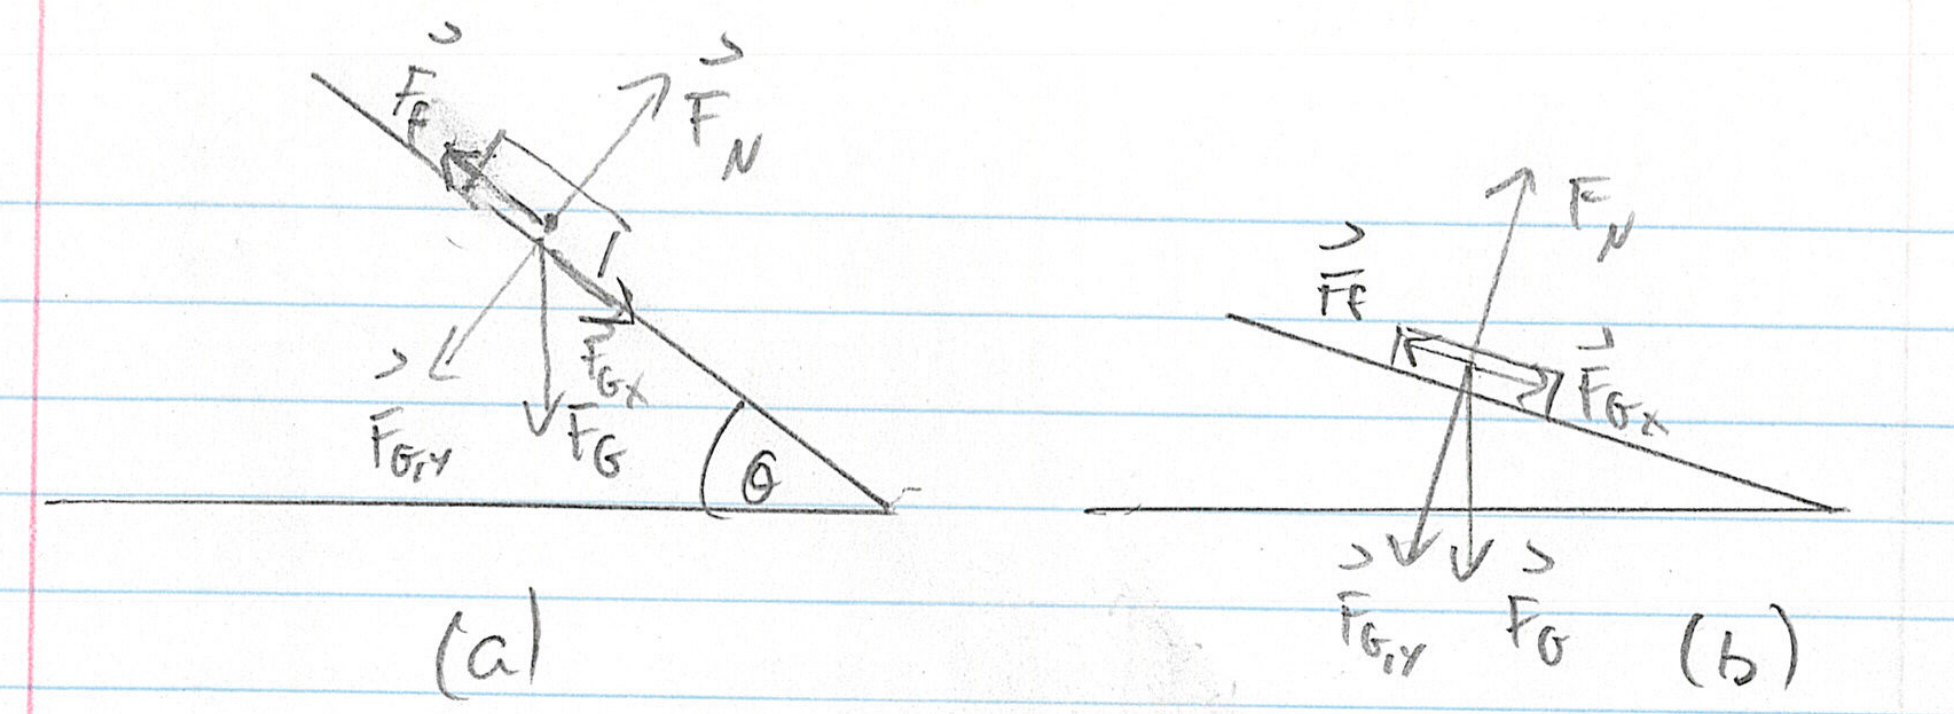 F⃗_F
F⃗_N
F⃗_Gx
F⃗_G,y
F_G
θ
(a)
F_N
F⃗_F
F⃗_Gx
F⃗_G,y
F⃗_G
(b)